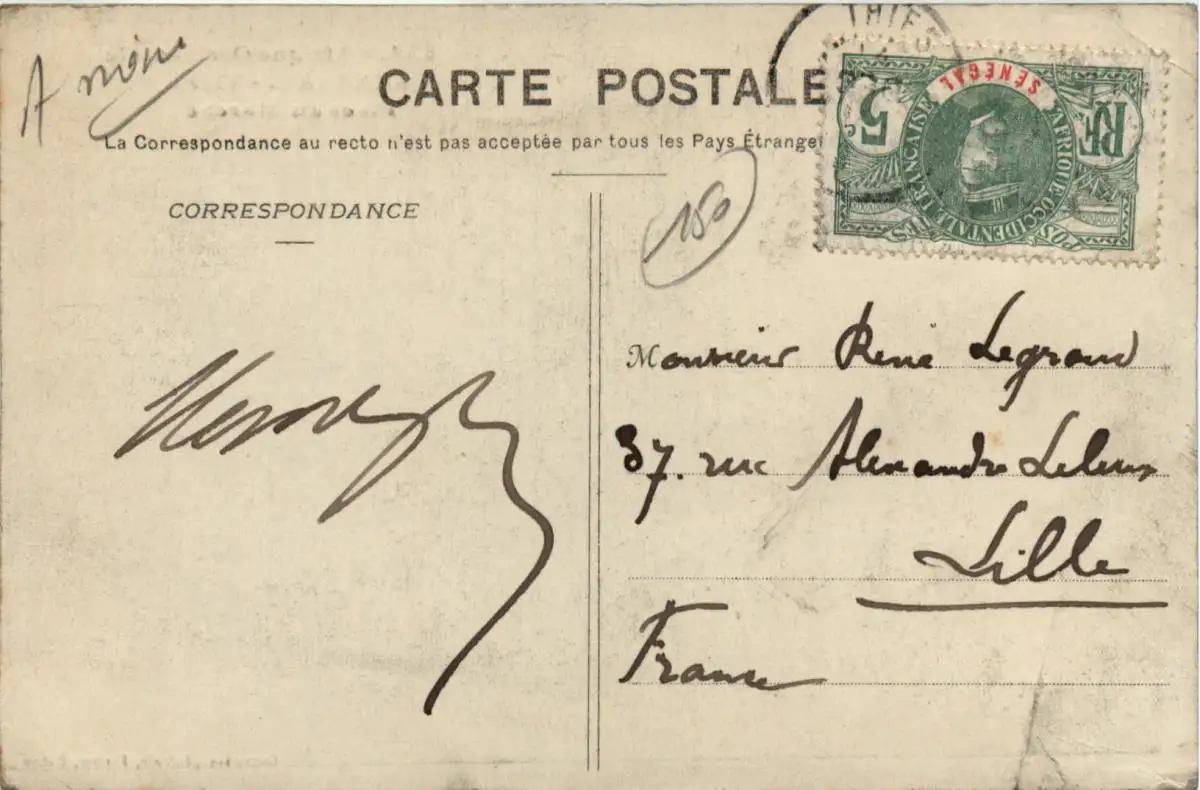 A
CARTE POSTALE
La Correspondance au recto n'est pas acceptée par tous les Pays Étranger
CORRESPONDANCE
150
THIE
SÉNÉGAL
5 c
RF
AFRIQUE OCCIDENTALE FRANÇAISE
POSTES
Monsieur René Legrand
37. rue Alexandre Leleux
Lille
France